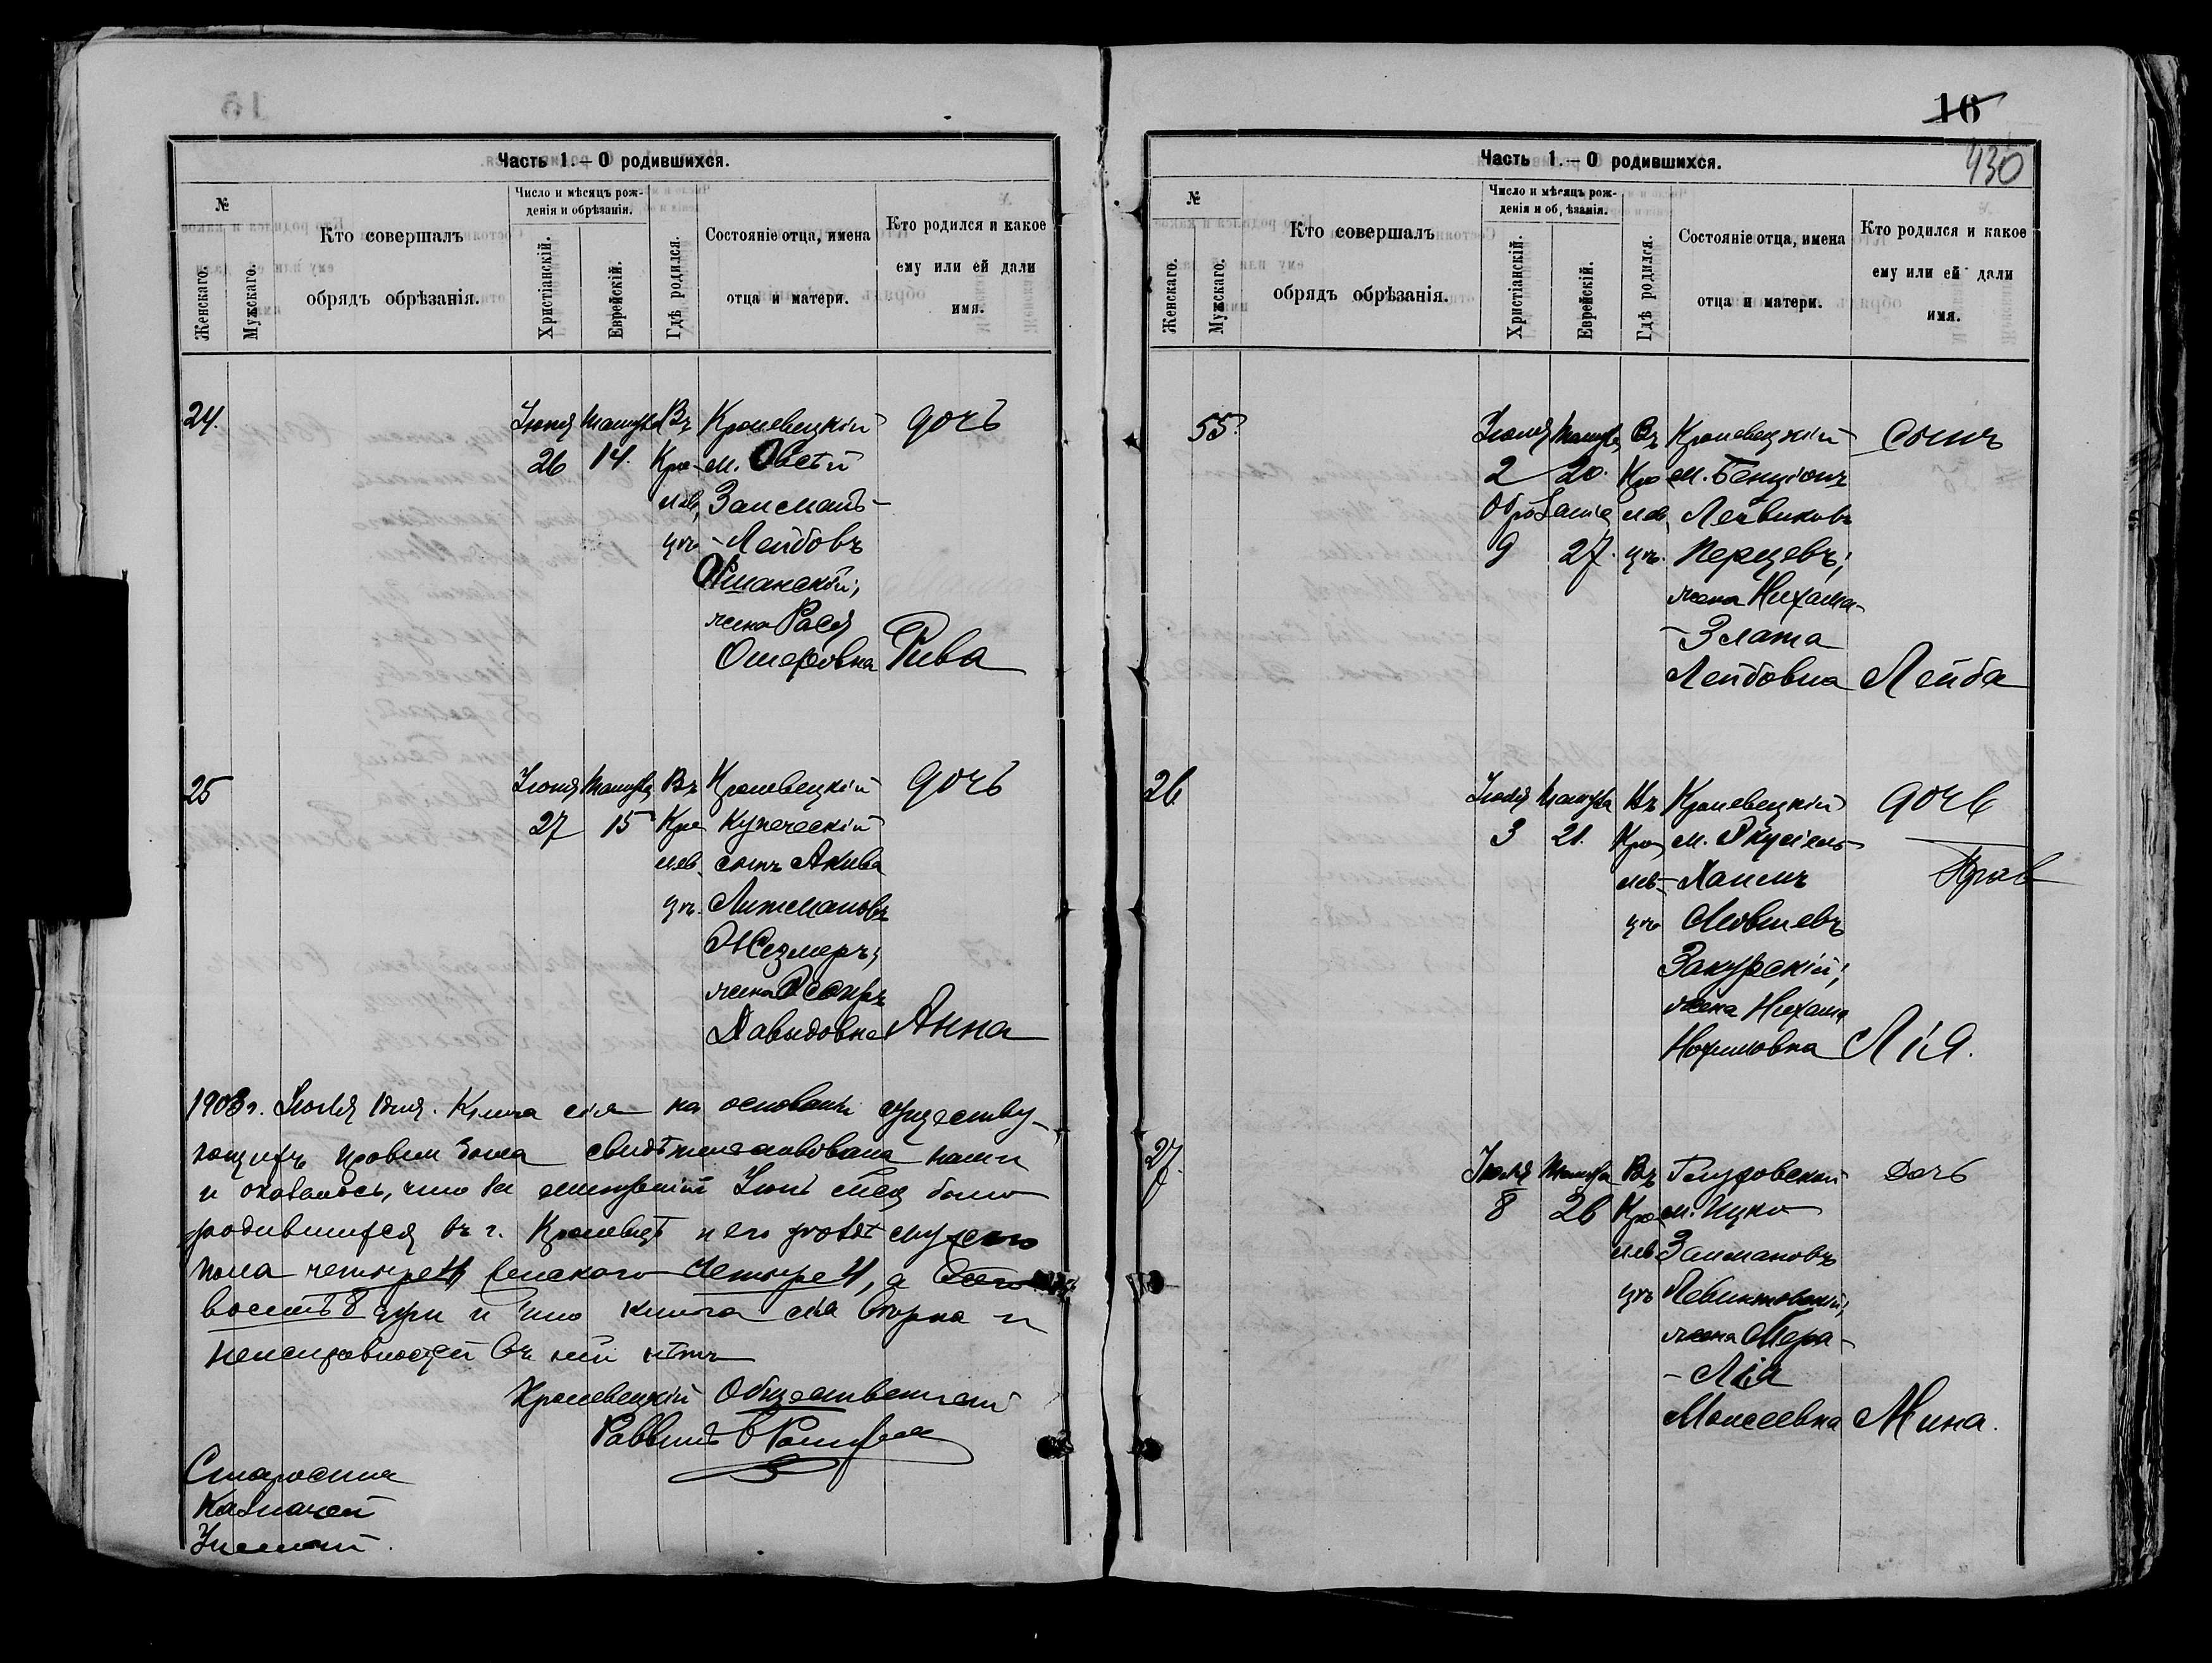 Часть 1.—О родившихся.
№
Женскаго.
Мужскаго.
Кто совершалъ
обрядъ обрѣзанія.
Число и мѣсяцъ рож-
денія и обрѣзанія.
Христіанскій.
Еврейскій.
Гдѣ родился.
Состояніе отца, имена
отца и матери.
Кто родился и какое
ему или ей дали
имя.
24. Іюня Тамуза Въ Кролевецкій дочь
26 14. Кро- м. Овсѣй
лев, Залманъ-
цѣ -Лейбовъ
жена Рася
Ошеровна Рива
25 Іюня Тамуза Въ Кролевецкій дочь
27 15 Кро купеческій
лев. сынъ Акива
цѣ. Литмановъ
Жезмеръ;
жена
Давыдовна Анна
1903 г. Іюля 1 дня. Книга сія на основаніи существу-
ющихъ правилъ была свидѣтельствована нами
и оказалось, что въ Іюнѣ мѣсяцѣ было
родившихся въ г. Кролевцѣ и его уѣздѣ мужского
пола четыре 4, женского четыре 4, а всего
восемь 8 душ и что книга сія вѣрна и
неисправностей въ ней нѣтъ
Кролевецкій Общественный
Раввинъ
Староста
Казначей
Ученый.
16
430
Часть 1.—О родившихся.
№
Женскаго.
Мужскаго.
Кто совершалъ
обрядъ обрѣзанія.
Число и мѣсяцъ рож-
денія и об, ѣзанія.
Христіанскій.
Еврейскій.
Гдѣ родился.
Состояніе отца, имена
отца и матери.
Кто родился и какое
ему или ей дали
имя.
55. Іюля Тамуза Въ Кролевецкій Сынъ
2 20. Кро м. Бенціонъ
Обрѣзаніе лев, Лейвиковъ
9 27. цѣ. Перцевъ;
жена Нихама-
-Злата
Лейбовна Лейба
26 Іюля Тамуза Въ Кролевецкій дочь
3 21. Кро, м. Якусіель
лев- Хаимъ
цѣ Мовшевъ
Закурскій;
жена Нихама
Нохимовна Лія.
27. Іюля Тамуза Въ Глуховской Дочь
8 26 Кро м. Ицко
лев Залмановъ
цѣ Левинтовскій;
жена Мера-
-Лія
Моисеевна Мина.